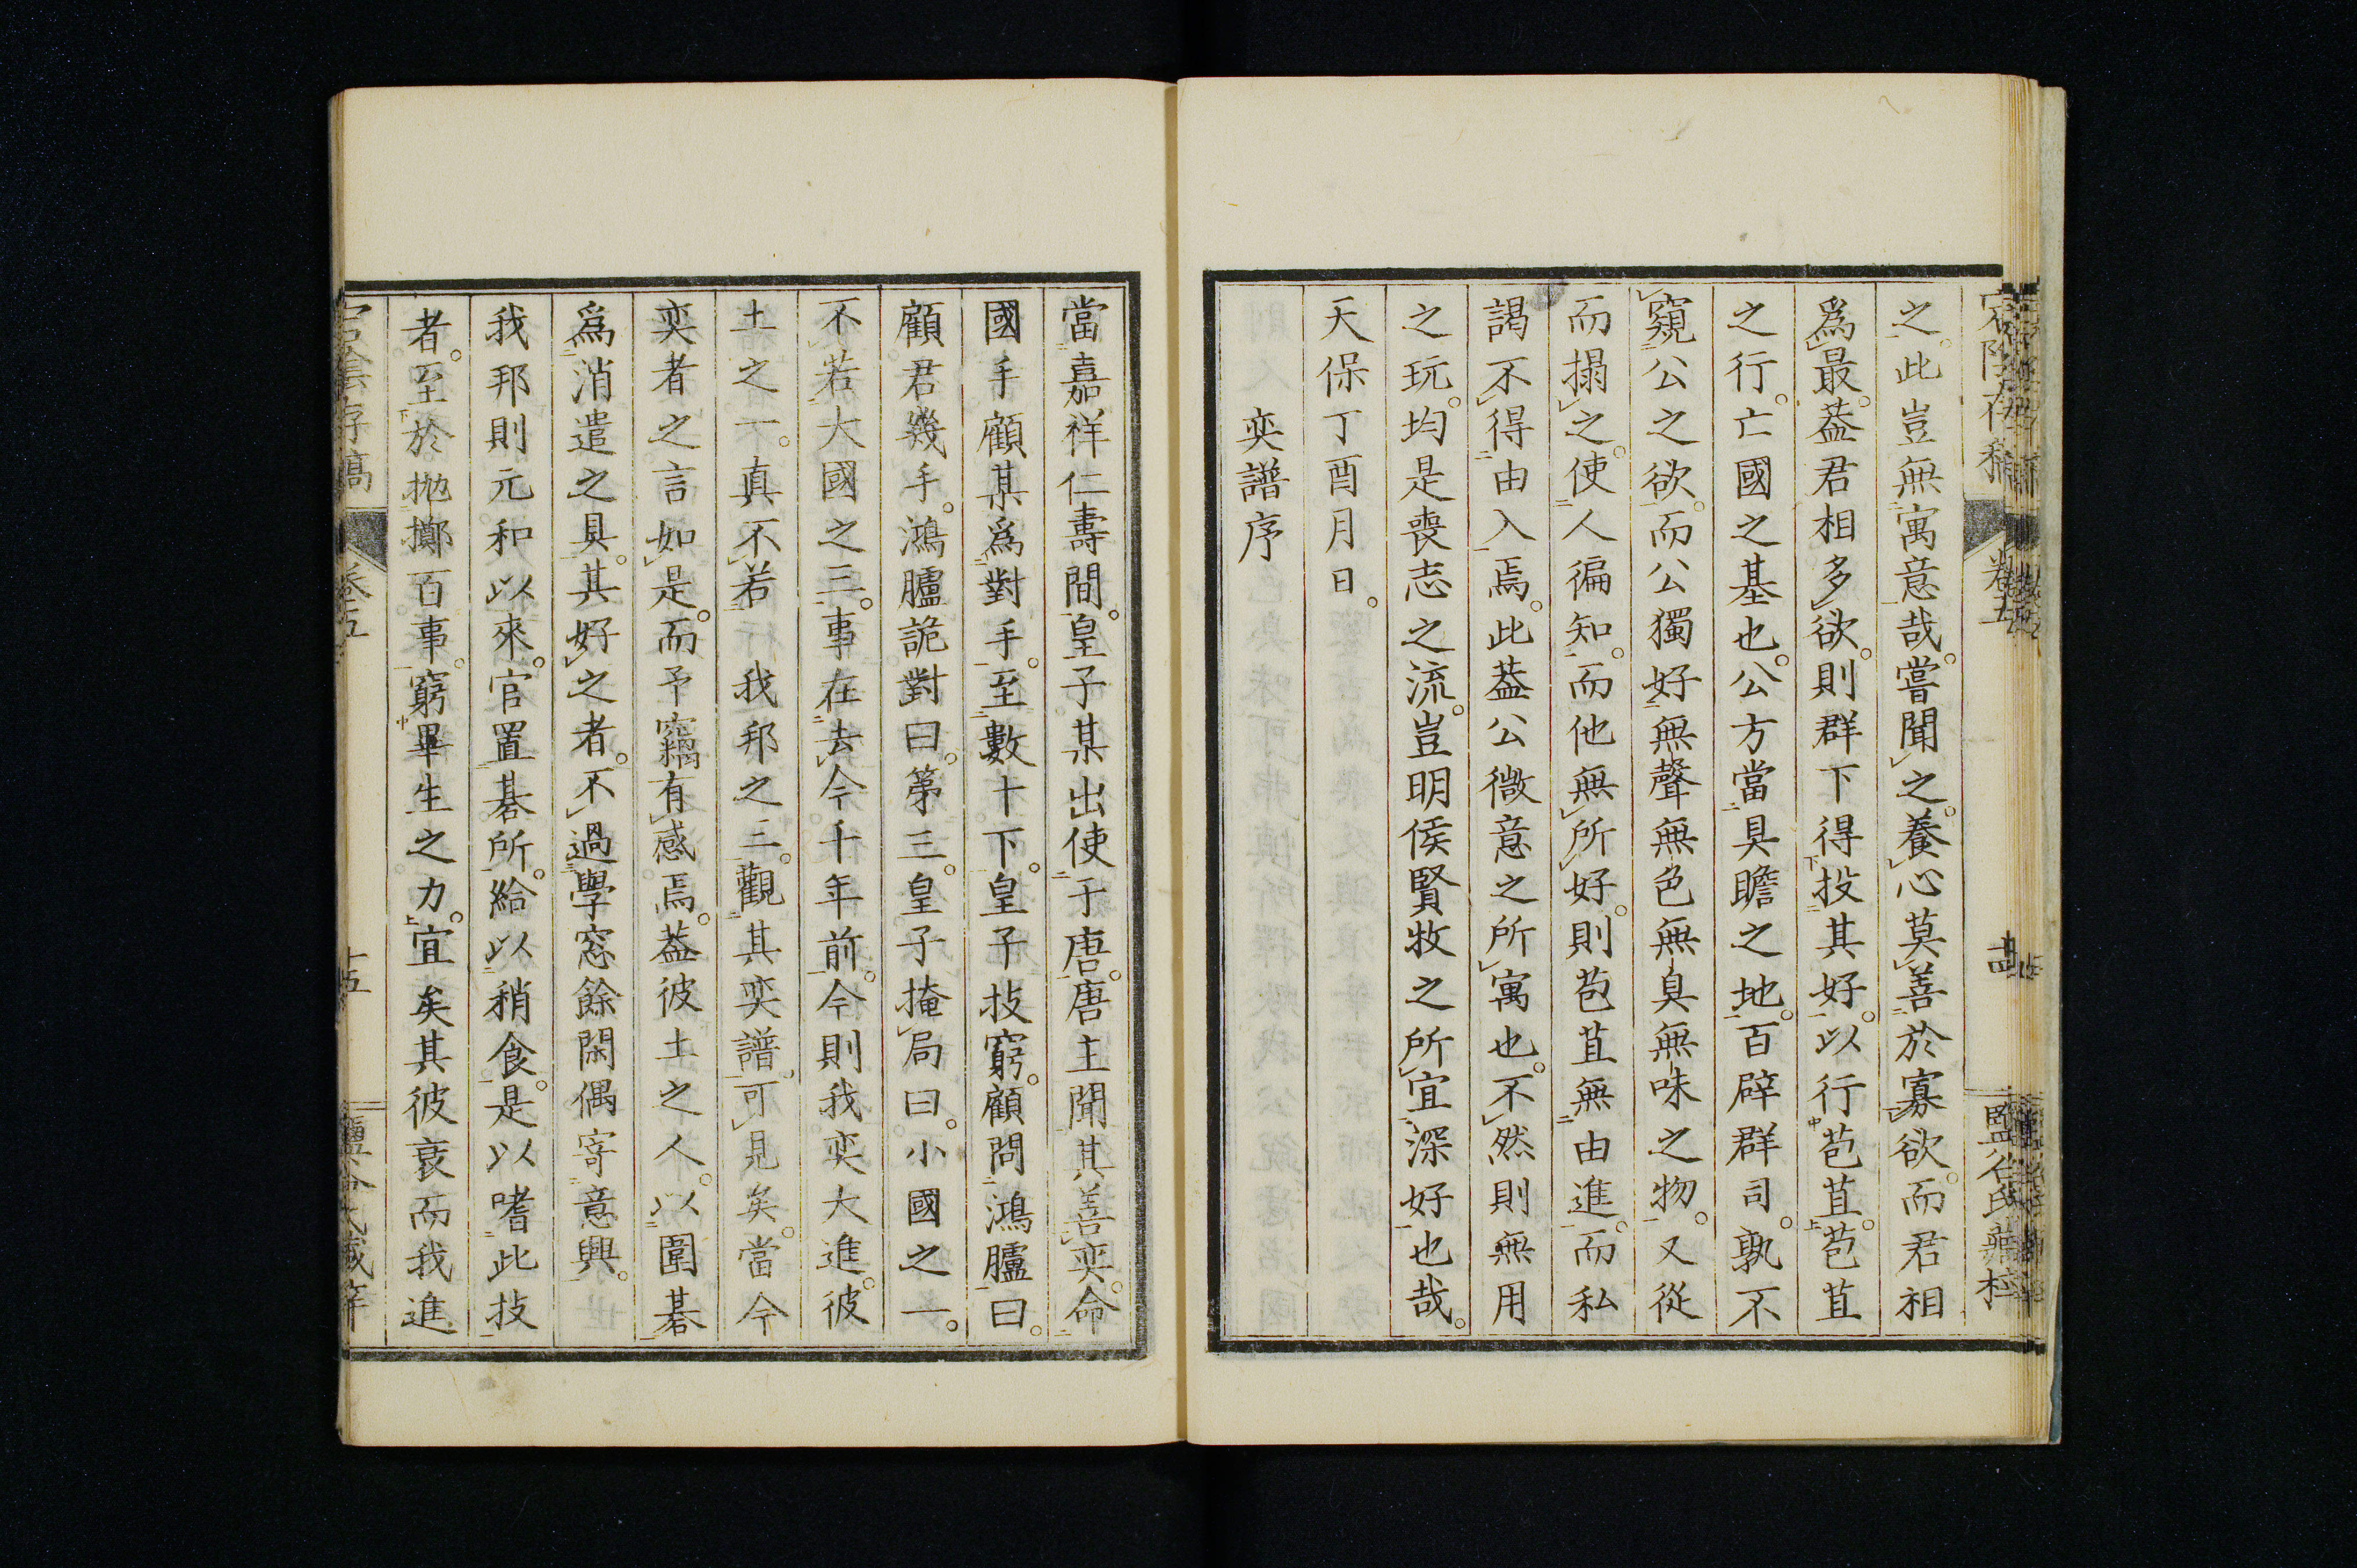 之。此豈無寓意哉。嘗聞之。養心莫善於寡欲。而君相
爲最。葢君相多欲。則群下得投其好。以行苞苴。苞苴
之行。亡國之基也。公方當具瞻之地。百辟群司。孰不
窺公之欲。而公獨好無聲無色無臭無味之物。又從
而搨之。使人徧知。而他無所好。則苞苴無由進。而私
謁不得由入焉。此葢公微意之所寓也。不然則無用
之玩。均是喪志之流。豈明侯賢牧之所宜深好也哉。
天保丁酉月日。
奕譜序
當嘉祥仁壽間。皇子某出使于唐。唐主聞其善奕。命
國手顧某爲對手。至數十下。皇子技窮。顧問鴻臚曰。
顧君幾手。鴻臚詭對曰。第三。皇子掩局曰。小國之一。
不若大國之三。事在去今千年前。今則我奕大進。彼
土之一。真不若我邦之三。觀其奕譜。可見矣。當今
奕者之言如是。而予竊有感焉。葢彼土之人。以圍碁
爲消遣之具。其好之者。不過學窓餘閑偶寄意興。
我邦則元和以來。官置碁所。給以稍食。是以嗜此技
者。至於抛擲百事。窮畢生之力。宜矣其彼衰而我進
卷五
十五